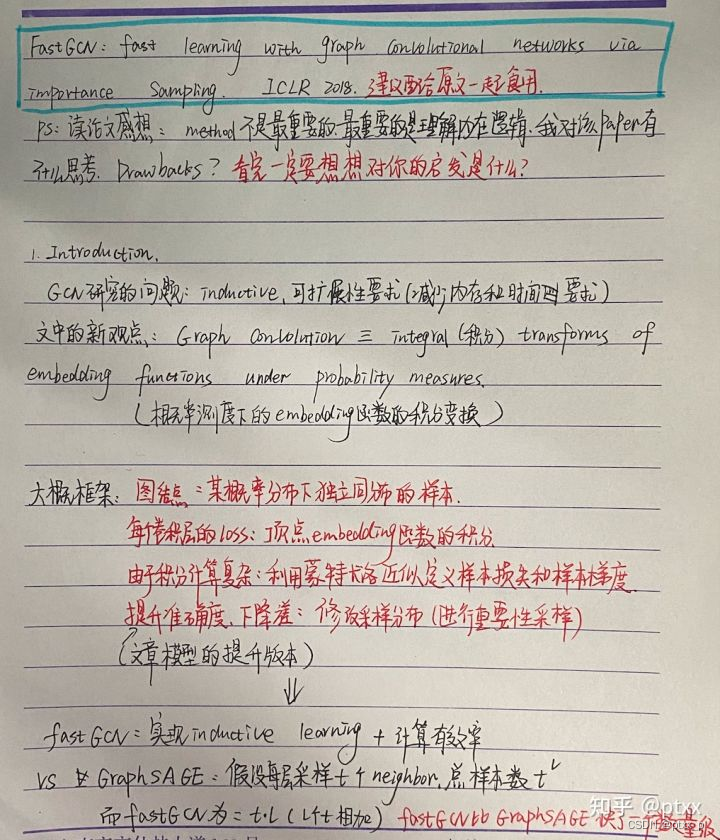 FastGCN: fast learning with graph convolutional networks via
importance Sampling. ICLR 2018. 建议配合原文一起食用.
PS: 读论文感想: method不是最重要的,最重要的是理解内在逻辑.我对该paper有
什么思考. Drawbacks? 看完一定要想想对你的启发是什么?
1. Introduction.
GCN研究的问题: inductive, 可扩展性要求(减少内存和时间 要求)
文中的新观点: Graph Convolution ≡ integral (积分) transforms of
embedding functions under probability measures.
(概率测度下的embedding函数的积分变换)
大概框架: 图结点 = 某概率分布下独立同分布的样本.
每个卷积层的loss: 顶点embedding函数的积分
由于积分计算复杂: 利用蒙特卡洛近似定义样本损失和样本梯度
提升准确度,下降差: 修改采样分布(进行重要性采样)
(文章模型的提升版本)
⇓
fastGCN = 实现inductive learning + 计算有效率
VS GraphSAGE: 假设每层采样t个neighbor,总样本数t^L
而fastGCN为=t·L (L个t相加) fastGCN比GraphSAGE快了一个数量级
知乎 @ptxx
CSDN